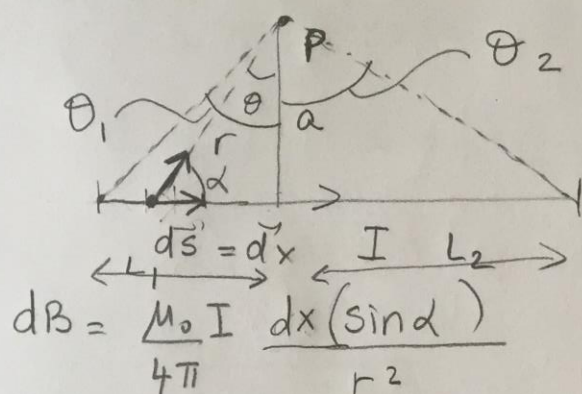 P θ₂
θ₁ θ a
r
α
d⃗s = d⃗x I L₂
L₁
dB = μ₀ I dx (sinα)
4π r²